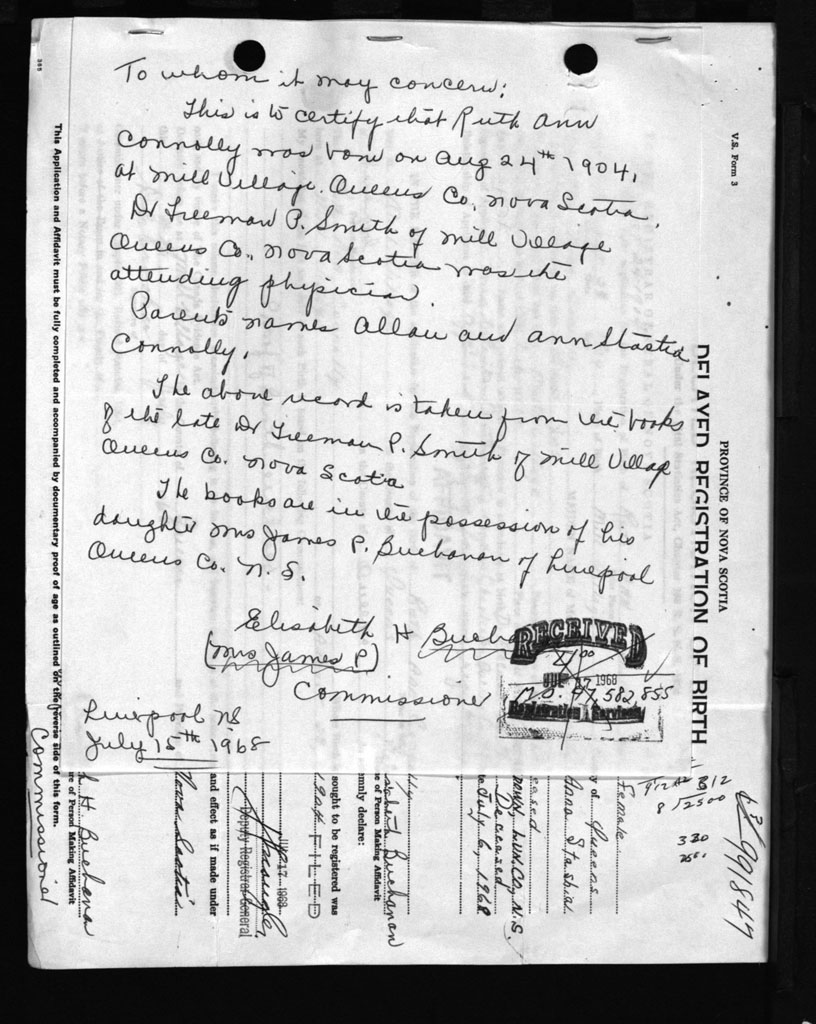 To whom it may concern:
This is to certify that Ruth Ann
Connolly was born on Aug 24th 1904,
at Mill Village. Queens Co, Nova Scotia.
Dr Freeman P. Smith of Mill Village
Queens Co., Nova Scotia was the
attending physician.
Parents names Allan and Ann Stastia
Connolly.
The above record is taken from the books
of the late Dr Freeman P. Smith of Mill Village
Queens Co. Nova Scotia
The books are in the possession of his
daughter Mrs James P. Buchanan of Liverpool
Queens Co. N.S.
Elisabeth H Bucha
(Mrs James P)
Commissioner
Liverpool NS
July 15th 1968
RECEIVED
1968
M.O. 47,582,855
Registration Services
V.S. Form 3
PROVINCE OF NOVA SCOTIA
DELAYED REGISTRATION OF BIRTH
This Application and Affidavit must be fully completed and accompanied by documentary proof of age as outlined on the reverse side of this form.
991847
8/2500
330
Female
y of Queens
Anna Stashia
eased
Lun. Co, N.S.
Deceased
July 6, 1968
Buchanan
e of Person Making Affidavit
mnly declare:
sought to be registered was
1904 FILED
17 1968
Deputy Registrar General
and effect as if made under
Nova Scotia
H Buchana
re of Person Making Affidavit
Commissioner